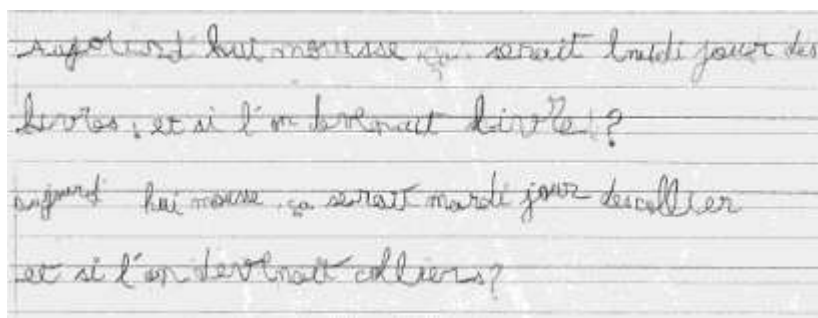 aujourd'hui mousse, ça serait lundi jour des
livres, et si l'on devenait livre ?
aujourd hui mousse, ça serait mardi jour descollier
et si l'on devenait colliers ?